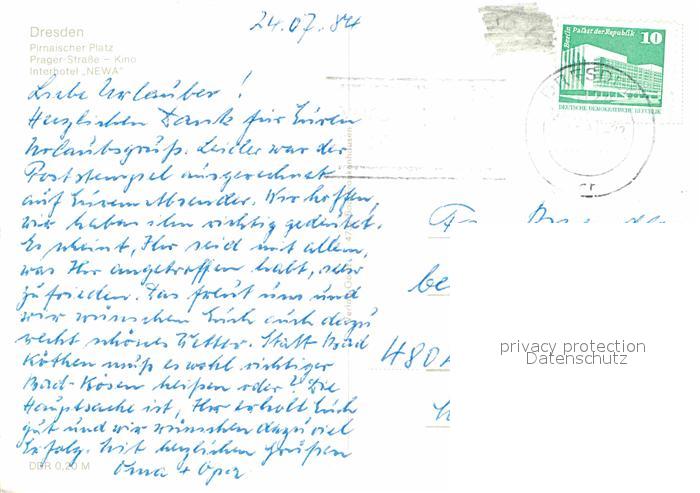 24.07.84
Dresden
Pirnaischer Platz
Prager-Straße – Kino
Interhotel „NEWA"
Berlin Palast der Republik
10
DEUTSCHE DEMOKRATISCHE REPUBLIK
Liebe Urlauber!
Herzlichen Dank für Euren
Urlaubsgruß. Leider war der
Poststempel ausgerechnet
auf Eurem Absender. Wir hoffen,
wir haben ihn richtig gedeutet.
Es scheint, Ihr seid mit allem,
was Ihr angetroffen habt, sehr
zufrieden. Das freut uns und
wir wünschen Euch auch dazu
recht schönes Wetter. Statt Bad
Köthen muß es wohl richtiger
Bad-Kösen heißen oder? Die
Hauptsache ist, Ihr erholt Euch
gut und wir wünschen dazu viel
Erfolg. Mit herzlichen Grüßen
Oma + Opa
DDR 0,20 M
be
480
privacy protection
Datenschutz